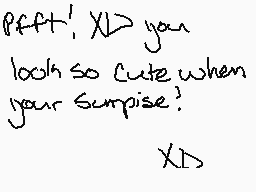 Pfft! XD you
look so cute when
your surpise!
XD